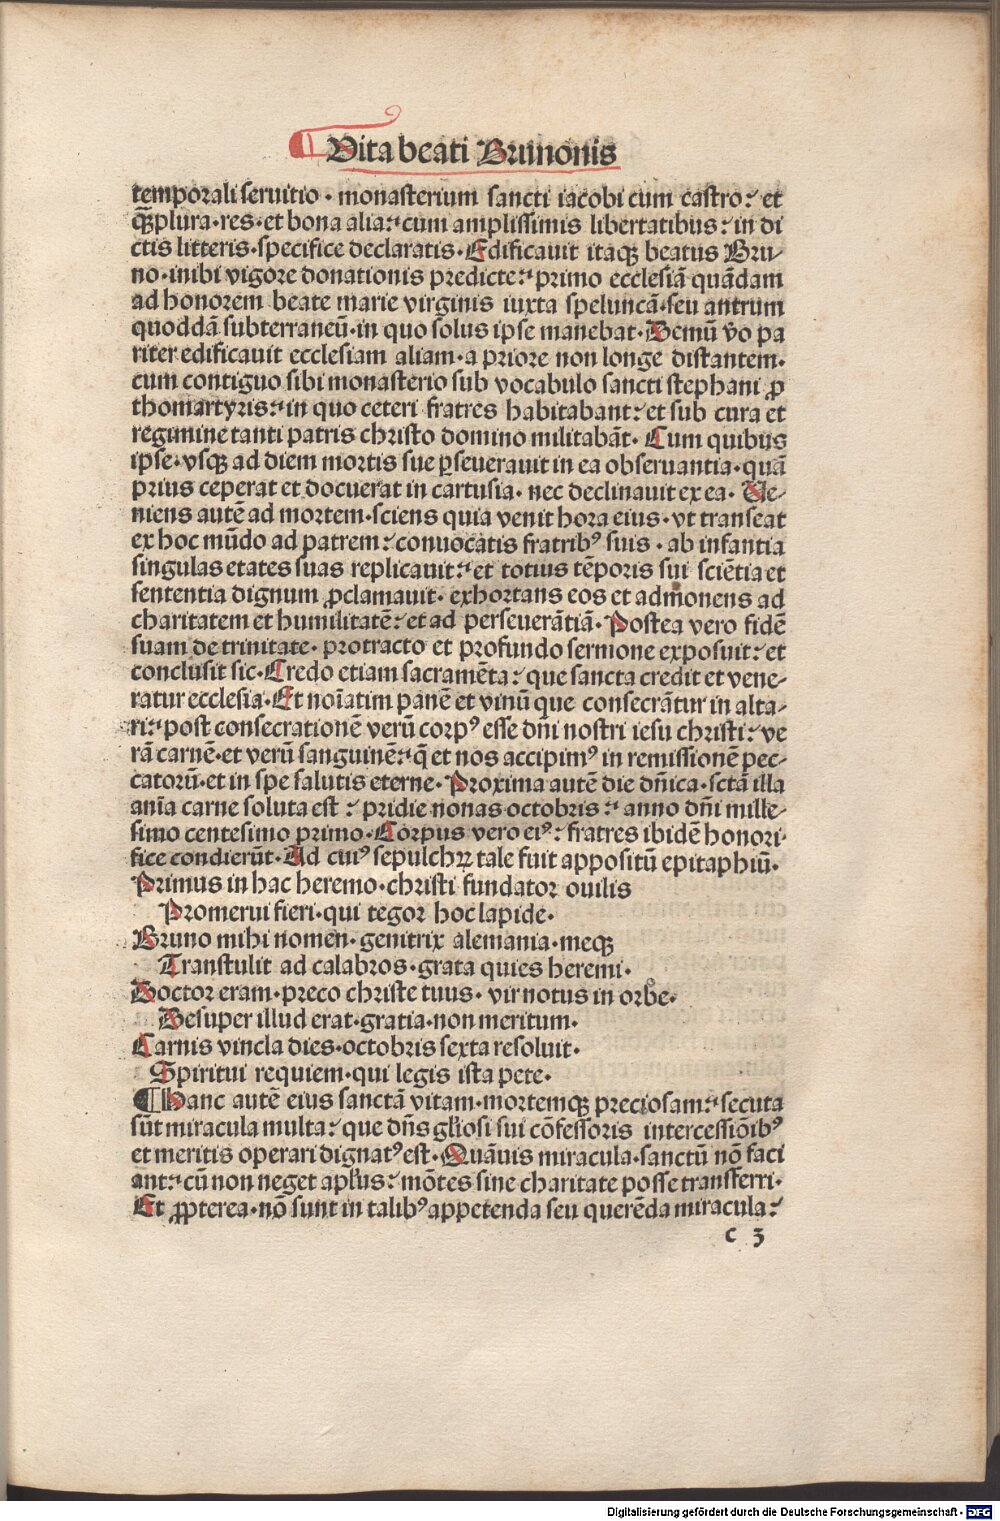 Vita beati Brunonis
temporali seruitio · monasterium sancti iacobi cum castro: et
qꝫplura · res · et bona alia: cum amplissimis libertatibus: in di
ctis litteris · specifice declaratis · Edificauit itaqꝫ beatus Bru-
no · inibi vigore donationis predicte: primo ecclesiā quādam
ad honorem beate marie virginis iuxta speluncā · seu antrum
quoddā subterraneū · in quo solus ipse manebat · Demū v̄o pa
riter edificauit ecclesiam aliam · a priore non longe distantem ·
cum contiguo sibi monasterio sub vocabulo sancti stephani ꝓ
thomartyris: in quo ceteri fratres habitabant: et sub cura et
regimine tanti patris christo domino militabāt · Cum quibus
ipse · vsqꝫ ad diem mortis sue ꝑseuerauit in ea obseruantia · quā
prius ceperat et docuerat in cartusia · nec declinauit ex ea · Ve-
niens autē ad mortem · sciens quia venit hora eius · vt transeat
ex hoc mūdo ad patrem: conuocatis fratribꝰ suis · ab infantia
singulas etates suas replicauit: et totius tēporis sui sciētia et
sententia dignum ꝓclamauit · exhortans eos et admonens ad
charitatem et humilitatē: et ad perseuerātiā · Postea vero fidē
suam de trinitate · protracto et profundo sermone exposuit: et
conclusit sic · Credo etiam sacramēta: que sancta credit et vene-
ratur ecclesia · Et noīatim panē et vinū que consecrātur in alta-
ri: post consecrationē verū corpꝰ esse dn̄i nostri iesu christi: ve
rā carnē · et verū sanguinē: q̄ et nos accipimꝰ in remissionē pec-
catorū · et in spe salutis eterne · Proxima autē die dn̄ica · sctā illa
anīa carne soluta est: pridie nonas octobris: anno dn̄i mille-
simo centesimo primo · Corpus vero eiꝰ: fratres ibidē honori-
fice condierūt · Ad cuiꝰ sepulchꝝ tale fuit appositū epitaphiū ·
Primus in hac heremo · christi fundator ouilis
Promerui fieri · qui tegor hoc lapide ·
Bruno mihi nomen · genitrix alemania · meqꝫ
Transtulit ad calabros · grata quies heremi ·
Doctor eram · preco christe tuus · vir notus in orbe ·
Desuper illud erat · gratia · non meritum ·
Carnis vincla dies · octobris sexta resoluit ·
Spiritui requiem · qui legis ista pete ·
¶ Hanc autē eius sanctā vitam · mortemqꝫ preciosam: secuta
sūt miracula multa: que dn̄s gl̄iosi sui cōfessoris intercessiōibꝰ
et meritis operari dignatꝰ est · Quāuis miracula · sanctū nō faci
ant: cū non neget apl̄us: mōtes sine charitate posse transferri ·
Et ꝓpterea · nō sunt in talibꝰ appetenda seu querēda miracula:
c 3
Digitalisierung gefördert durch die Deutsche Forschungsgemeinschaft · DFG